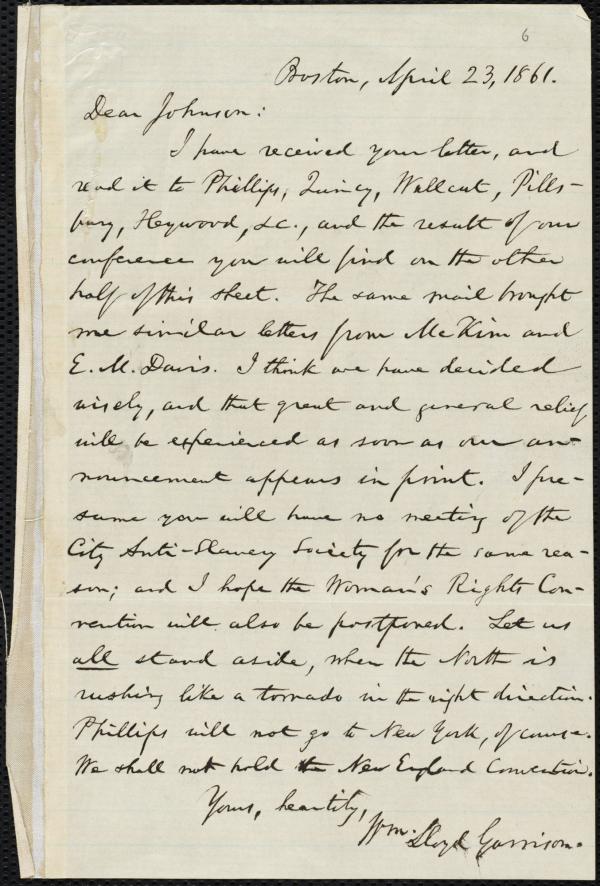 6
Boston, April 23, 1861.
Dear Johnson:
I have received your letter, and
read it to Phillips, Quincy, Wallcut, Pills-
bury, Heywood, &c., and the result of our
conference you will find on the other
half of this sheet. The same mail brought
me similar letters from McKim and
E. M. Davis. I think we have decided
wisely, and that great and general relief
will be experienced as soon as our an-
nouncement appears in print. I pre-
sume you will have no meeting of the
City Anti-Slavery Society for the same rea-
son; and I hope the Woman's Rights Con-
vention will also be postponed. Let us
all stand aside, when the North is
rushing like a tornado in the right direction.
Phillips will not go to New York, of course.
We shall not hold the New England Convention.
Yours, heartily,
Wm. Lloyd Garrison.